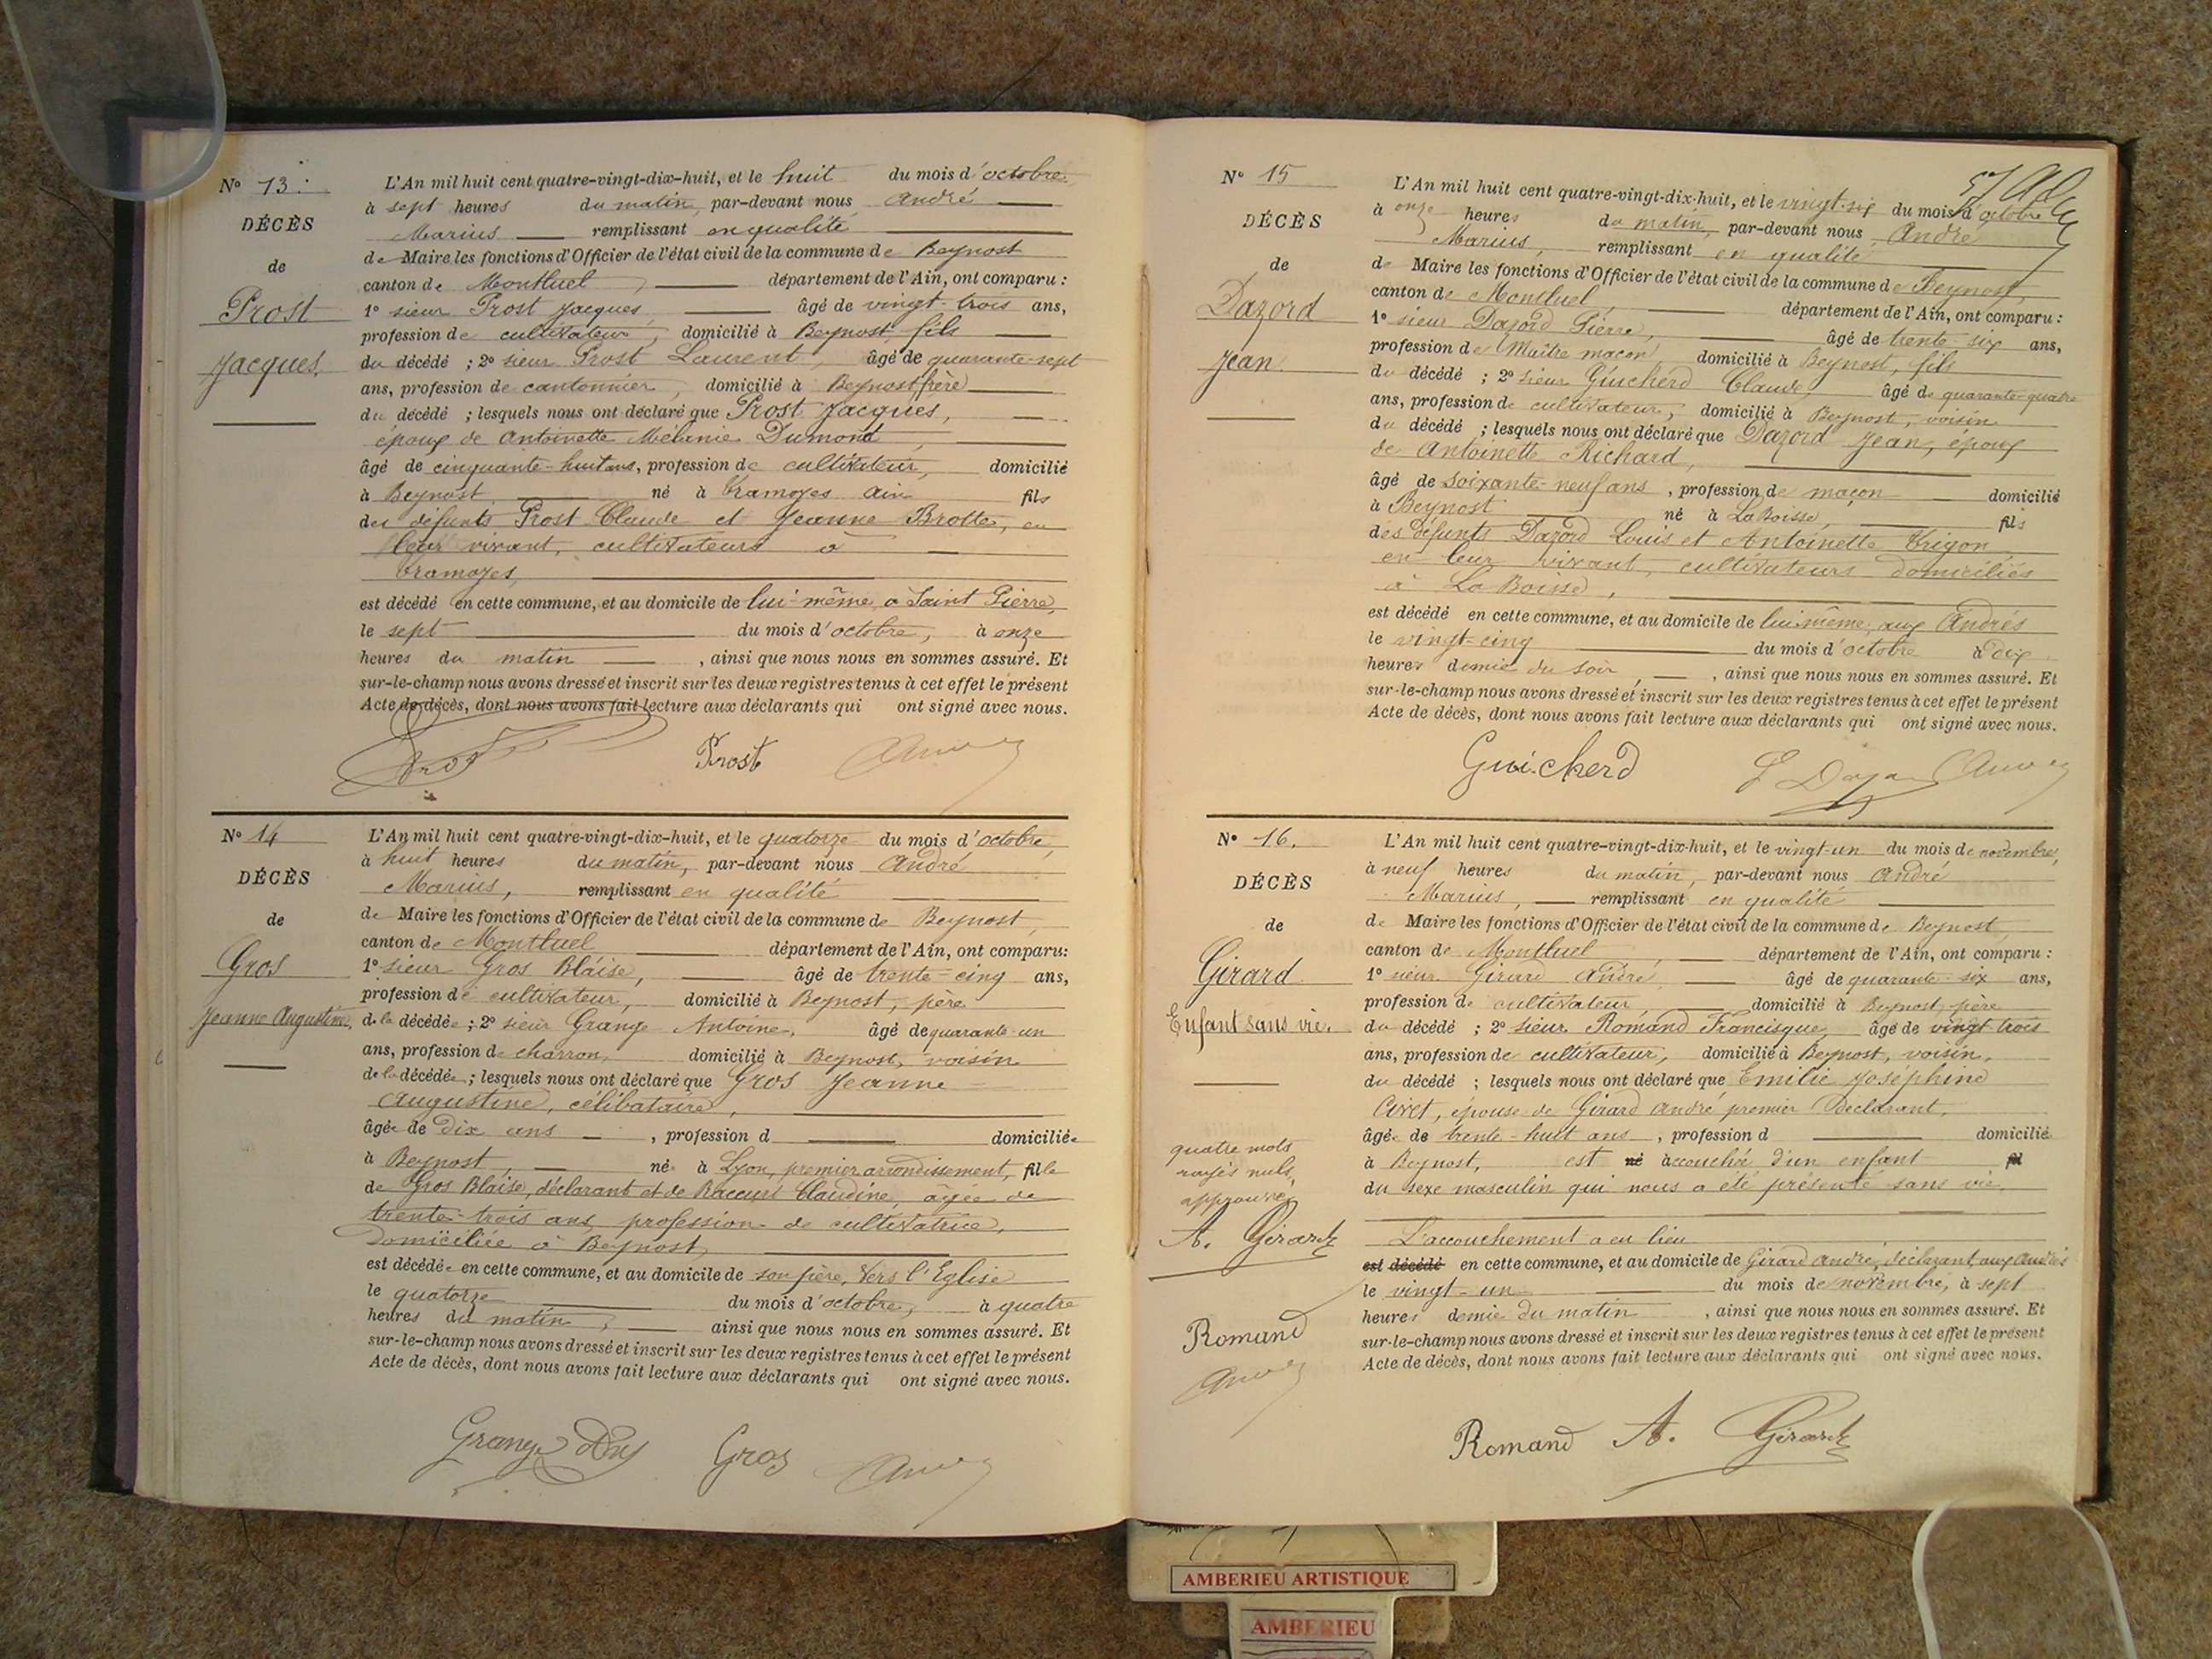 N° 13.
DÉCÈS
de
Prost
Jacques.
L'An mil huit cent quatre-vingt-dix-huit, et le huit du mois d'octobre
à sept heures du matin, par-devant nous André
Marius remplissant en qualité
de Maire les fonctions d'Officier de l'état civil de la commune de Beynost
canton de Montluel, département de l'Ain, ont comparu :
1° sieur Prost Jacques, âgé de vingt-trois ans,
profession de cultivateur, domicilié à Beynost, fils
du décédé ; 2° sieur Prost Laurent, âgé de quarante-sept
ans, profession de cantonnier, domicilié à Beynost, frère
du décédé ; lesquels nous ont déclaré que Prost Jacques,
époux de Antoinette Mélanie Dumond,
âgé de cinquante-huit ans, profession de cultivateur, domicilié
à Beynost, né à Tramoyes Ain fils
des défunts Prost Claude et Jeanne Brotte, en
leur vivant, cultivateurs à
Tramoyes,
est décédé en cette commune, et au domicile de lui-même, à Saint Pierre,
le sept du mois d'octobre, à onze
heures du matin, ainsi que nous nous en sommes assuré. Et
sur-le-champ nous avons dressé et inscrit sur les deux registres tenus à cet effet le présent
Acte de décès, dont nous avons fait lecture aux déclarants qui ont signé avec nous.
Prost Prost
N° 14
DÉCÈS
de
Gros
Jeanne Augustine,
L'An mil huit cent quatre-vingt-dix-huit, et le quatorze du mois d'octobre,
à huit heures du matin, par-devant nous André
Marius, remplissant en qualité
de Maire les fonctions d'Officier de l'état civil de la commune de Beynost,
canton de Montluel département de l'Ain, ont comparu:
1° sieur Gros Blaise, âgé de trente-cinq ans,
profession de cultivateur, domicilié à Beynost, père
de la décédée ; 2° sieur Grange Antoine, âgé de quarante-un
ans, profession de charron, domicilié à Beynost, voisin
de la décédée ; lesquels nous ont déclaré que Gros Jeanne
Augustine, célibataire,
âgée de dix ans, profession d domiciliée
à Beynost, née à Lyon, premier arrondissement, fille
de Gros Blaise, déclarant et de Claudine, âgée de
trente-trois ans, profession de cultivatrice,
domiciliée à Beynost,
est décédée en cette commune, et au domicile de son père, vers l'Eglise
le quatorze du mois d'octobre, à quatre
heures du matin, ainsi que nous nous en sommes assuré. Et
sur-le-champ nous avons dressé et inscrit sur les deux registres tenus à cet effet le présent
Acte de décès, dont nous avons fait lecture aux déclarants qui ont signé avec nous.
Grange Gros
N° 15
DÉCÈS
de
Dazord
Jean.
L'An mil huit cent quatre-vingt-dix-huit, et le vingt-six du mois d'octobre
à onze heures du matin, par-devant nous André
Marius, remplissant en qualité
de Maire les fonctions d'Officier de l'état civil de la commune de Beynost,
canton de Montluel, département de l'Ain, ont comparu :
1° sieur Dazord Pierre, âgé de trente-six ans,
profession de Maître maçon, domicilié à Beynost, fils
du décédé ; 2° sieur Guicherd Claude, âgé de quarante-quatre
ans, profession de cultivateur, domicilié à Beynost, voisin
du décédé ; lesquels nous ont déclaré que Dazord Jean, époux
de Antoinette Richard,
âgé de soixante-neuf ans, profession de maçon domicilié
à Beynost né à La Boisse, fils
des défunts Dazord Louis et Antoinette Trigon
en leur vivant, cultivateurs domiciliés
à La Boisse,
est décédé en cette commune, et au domicile de lui-même, aux Andrés
le vingt-cinq du mois d'octobre à dix
heures demie du soir, ainsi que nous nous en sommes assuré. Et
sur-le-champ nous avons dressé et inscrit sur les deux registres tenus à cet effet le présent
Acte de décès, dont nous avons fait lecture aux déclarants qui ont signé avec nous.
Guicherd
N° 16.
DÉCÈS
de
Girard
Enfant sans vie.
quatre mots
rayés nuls,
approuvés
A. Girard
Romand
L'An mil huit cent quatre-vingt-dix-huit, et le vingt-un du mois de novembre,
à neuf heures du matin, par-devant nous André
Marius, remplissant en qualité
de Maire les fonctions d'Officier de l'état civil de la commune de Beynost,
canton de Montluel, département de l'Ain, ont comparu :
1° sieur Girard André, âgé de quarante-six ans,
profession de cultivateur, domicilié à Beynost, père
du décédé ; 2° sieur Romand Francisque, âgé de vingt-trois
ans, profession de cultivateur, domicilié à Beynost, voisin,
du décédé ; lesquels nous ont déclaré que Emilie Joséphine
Civet, épouse de Girard André premier déclarant,
âgée de trente-huit ans, profession d domicilié
à Beynost, est né accouchée d'un enfant fil
du sexe masculin qui nous a été présenté sans vie.
L'accouchement a eu lieu
est décédé en cette commune, et au domicile de Girard André, déclarant, aux Andrés
le vingt-un du mois de novembre, à sept
heures demie du matin, ainsi que nous nous en sommes assuré. Et
sur-le-champ nous avons dressé et inscrit sur les deux registres tenus à cet effet le présent
Acte de décès, dont nous avons fait lecture aux déclarants qui ont signé avec nous.
Romand A. Girard
AMBERIEU ARTISTIQUE
AMBERIEU